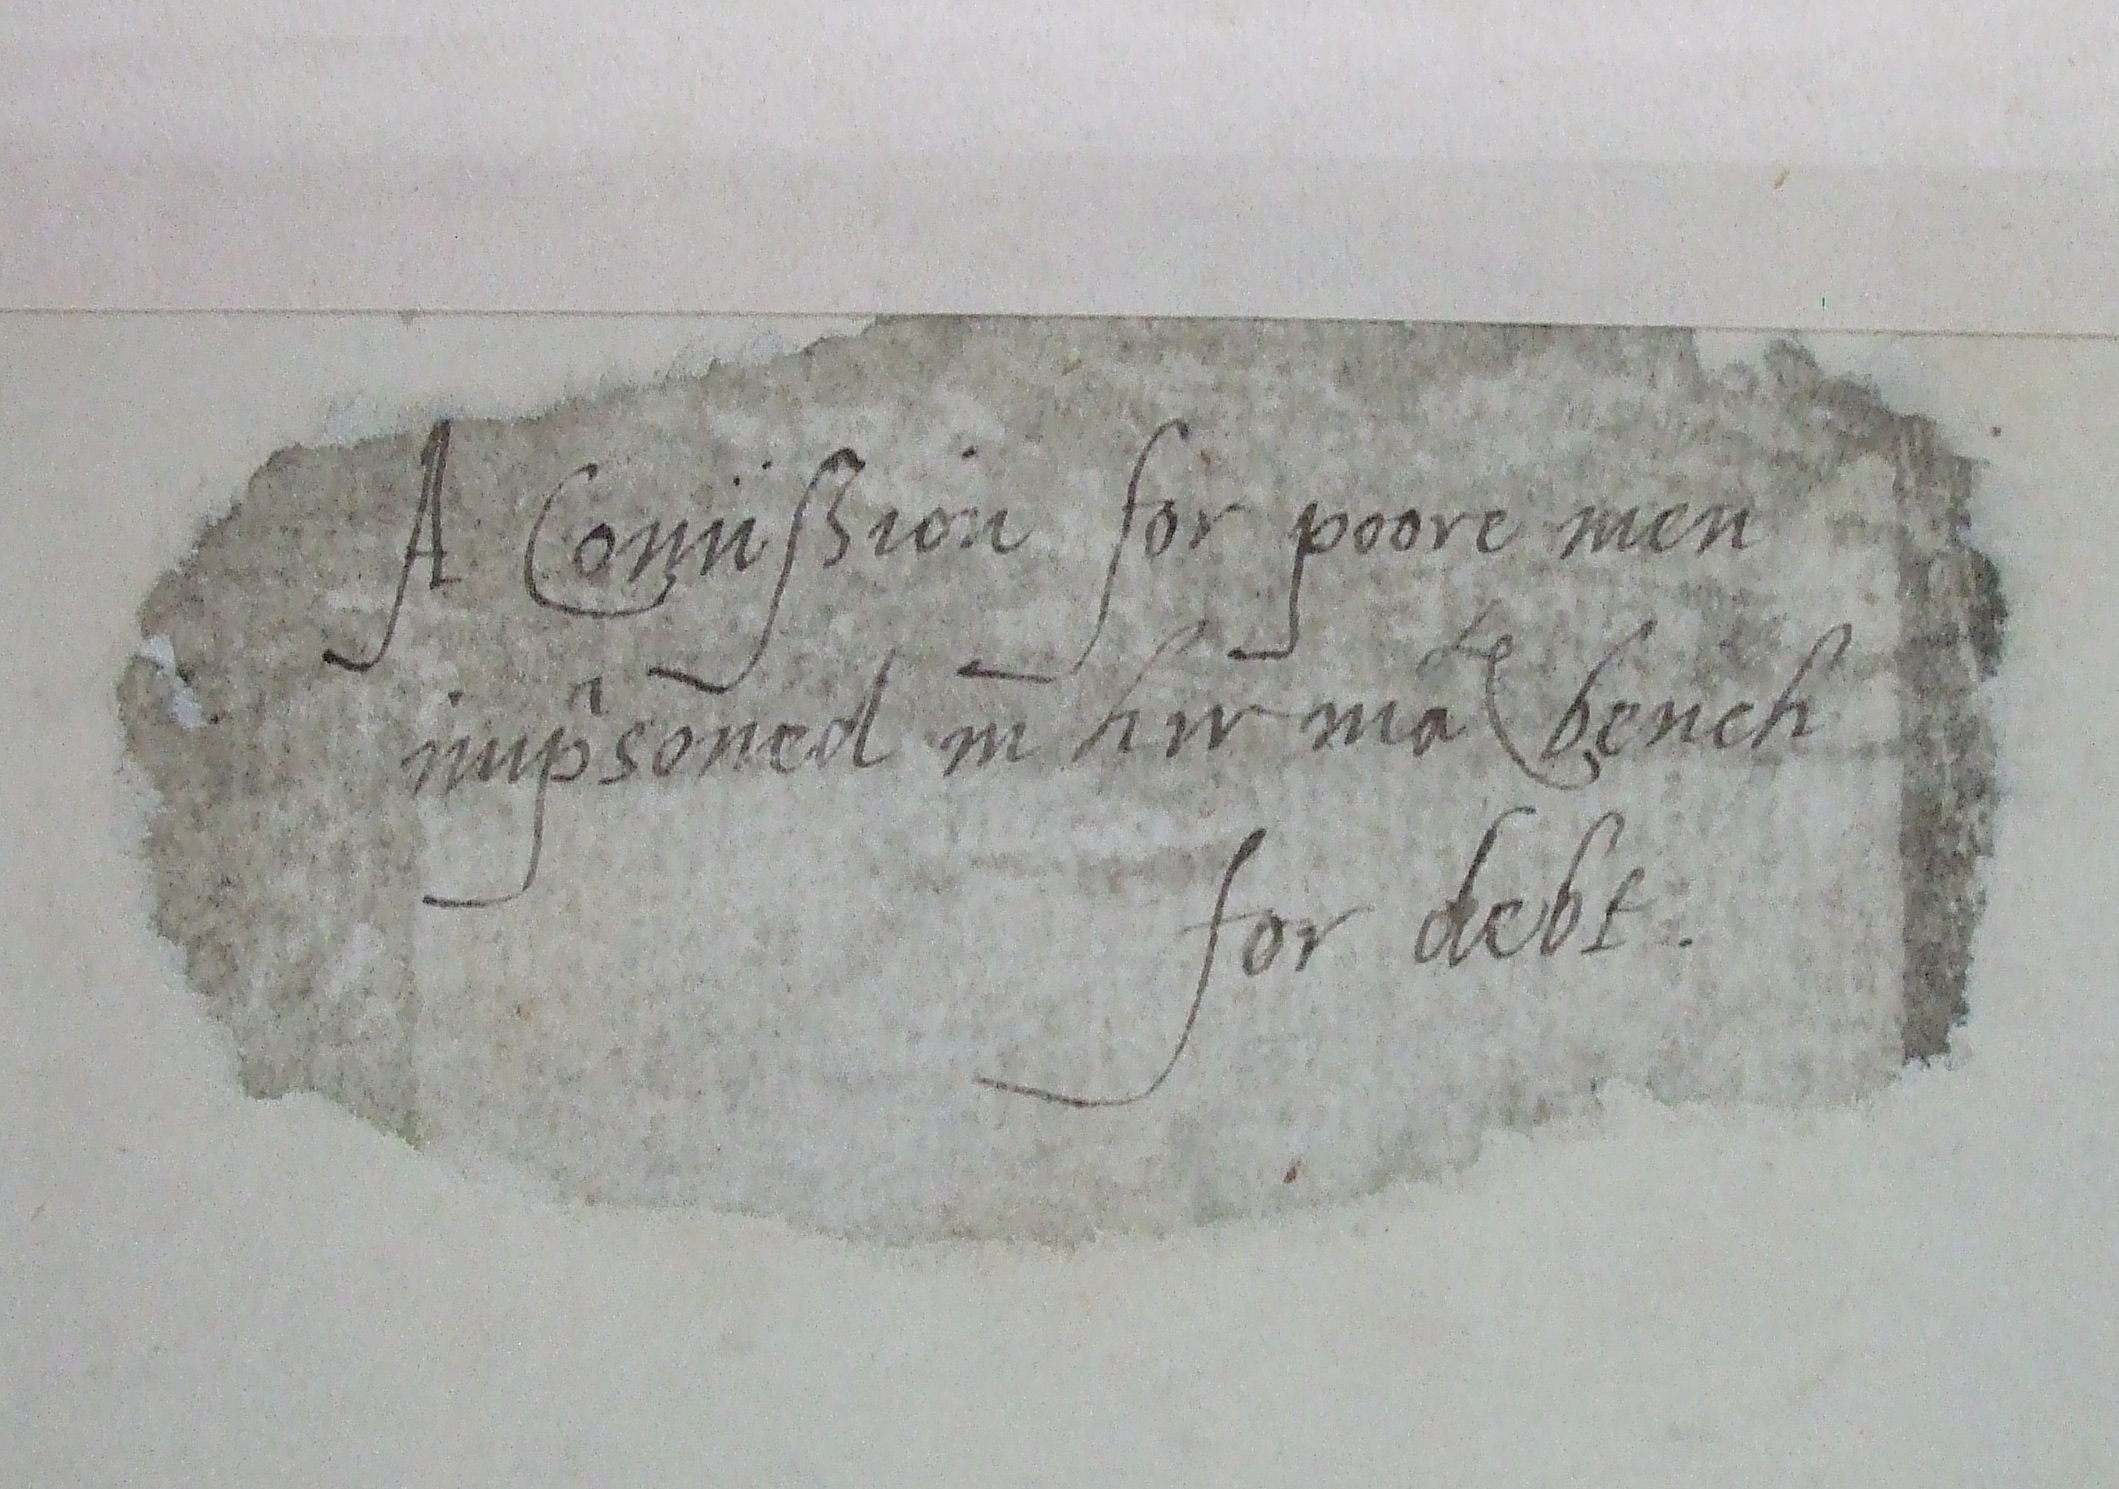 A Comißion for poore men
impʳsoned in hir maᵗⁱᵉ bench
for debt.